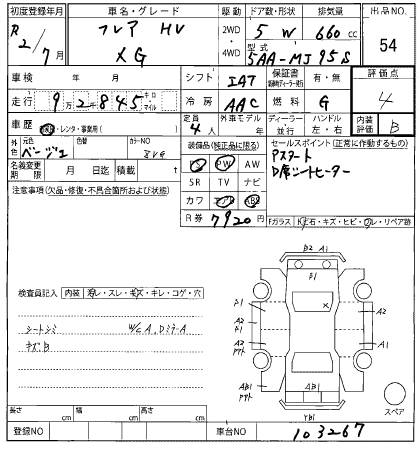 初度登録年月 車名・グレード 駆動 ドア数・形状 排気量 出品NO.
R2/7月 フレア HV XG 2WD・4WD 5 W 660cc 54
型式 5AA-MJ95S
車検 年 月 シフト IAT 保証書 有・無 評価点
走行 9万2千845 キロ・マイル 冷房 AAC 燃料 G 4
車歴 レンタ・事業用( ) 定員 4人 外車モデル 年 ディーラー 並行 ハンドル 左・右 内装評価 B
外色 元色 ベージュ 色替 カラーNO ZVG
装備品(純正品に限る) セールスポイント(正常に作動するもの)
PS PW AW Pスタート
名義変更期限 月 日迄 積載 t SR TV ナビ D席シートヒーター
注意事項(欠品・修復・不具合箇所および状態) カワ エアB ABS
R券 7920円 Fガラス キズ・石・キズ・ヒビ・ワレ・リペア跡
B2 A1
B1
検査員記入 内装 汚レ・スレ・キズ・キレ・コゲ・穴
シートシミ W/C A, DミラーA
キズB
A2
A1
AB1
YB1
スペア
長さ cm 幅 cm 高さ cm
登録NO 車台NO 103267